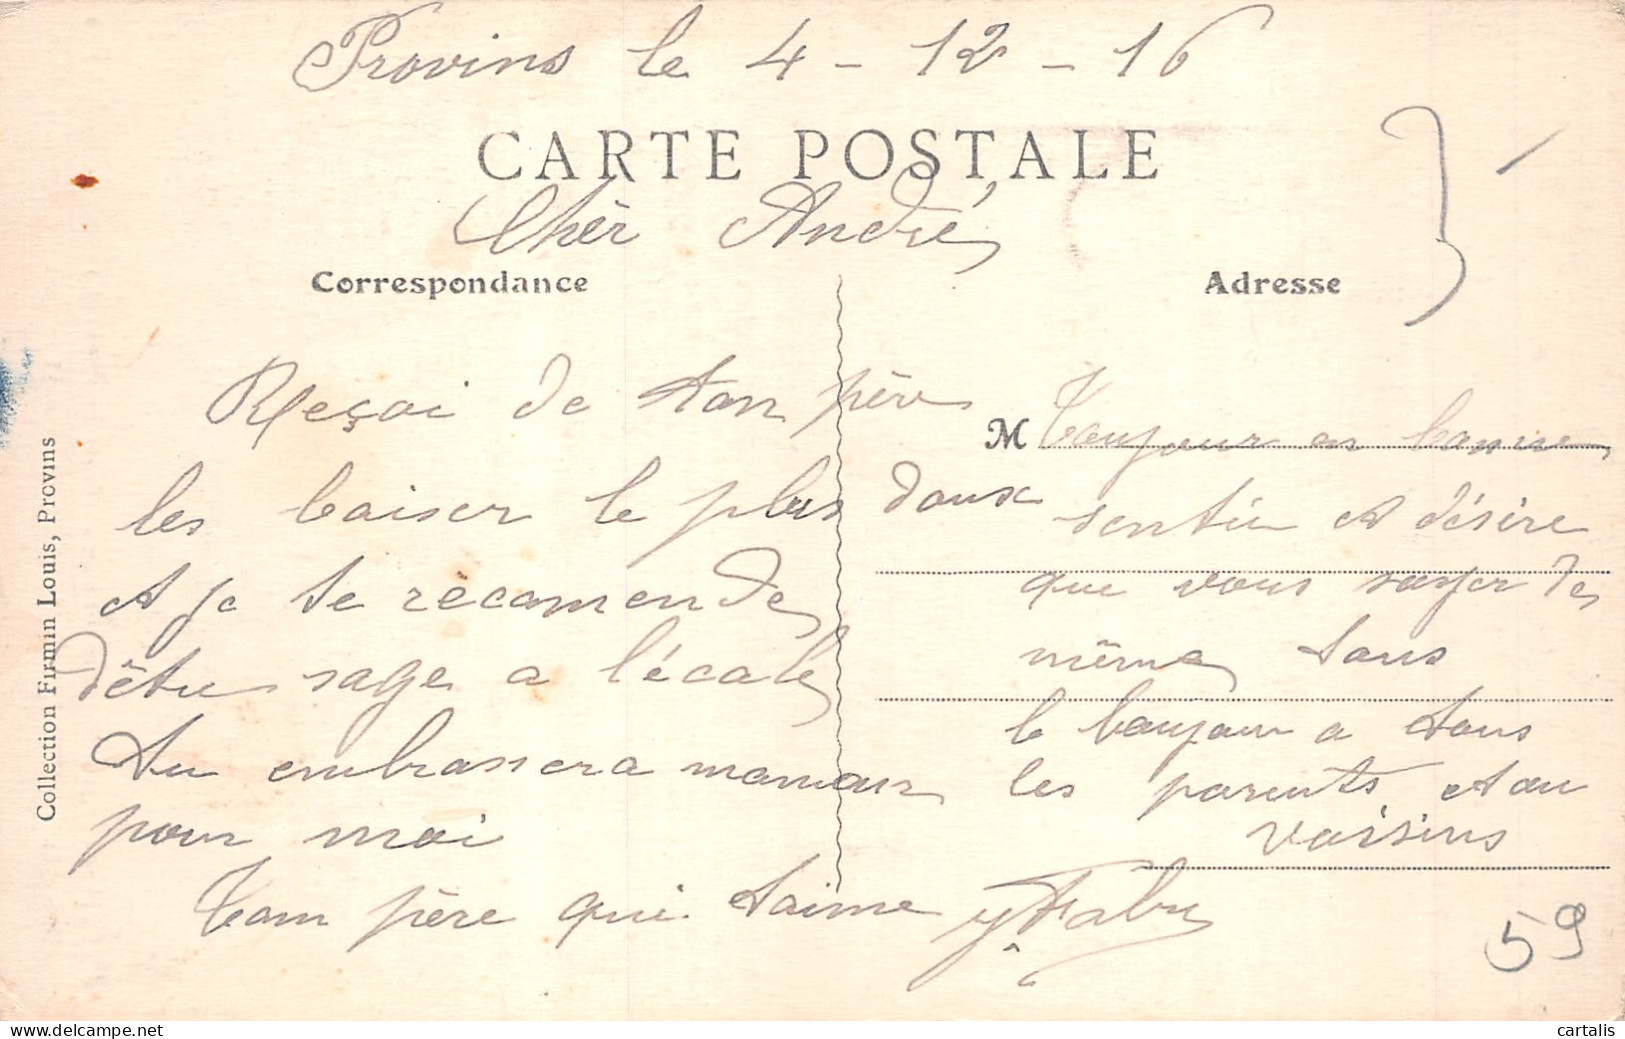 Provins le 4-12-16
CARTE POSTALE
Chèr André
Correspondance
Adresse
Reçoi de ton père
les baiser le plus doux
et je te recomende
dêtre sage a l'école
tu embrassera maman
pour moi
Ton père qui t'aime
Y Fabre
M Toujour en bonne
sentée et désire
que vous soyer de
même tous
le bonjour a tous
les parents et au
voisins
59
Collection Firmin Louis, Provins
cartalis